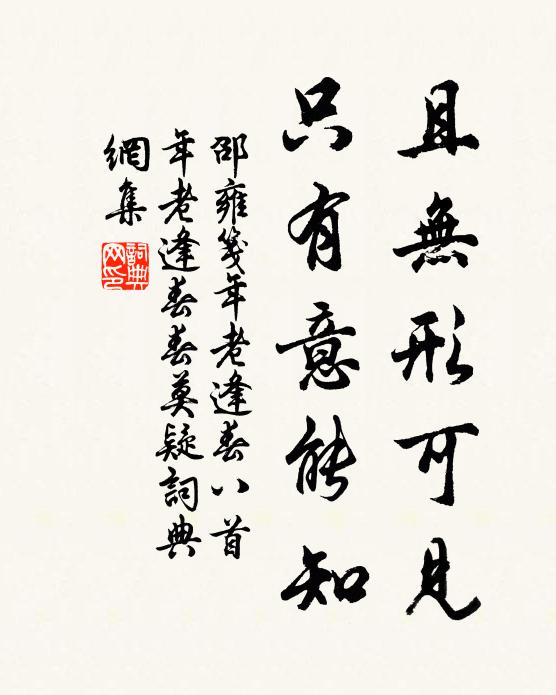 且無形可見
只有意能知
邵雍箋年老逢春八首
年老逢春春莫疑詞典
網集
詞典
网印